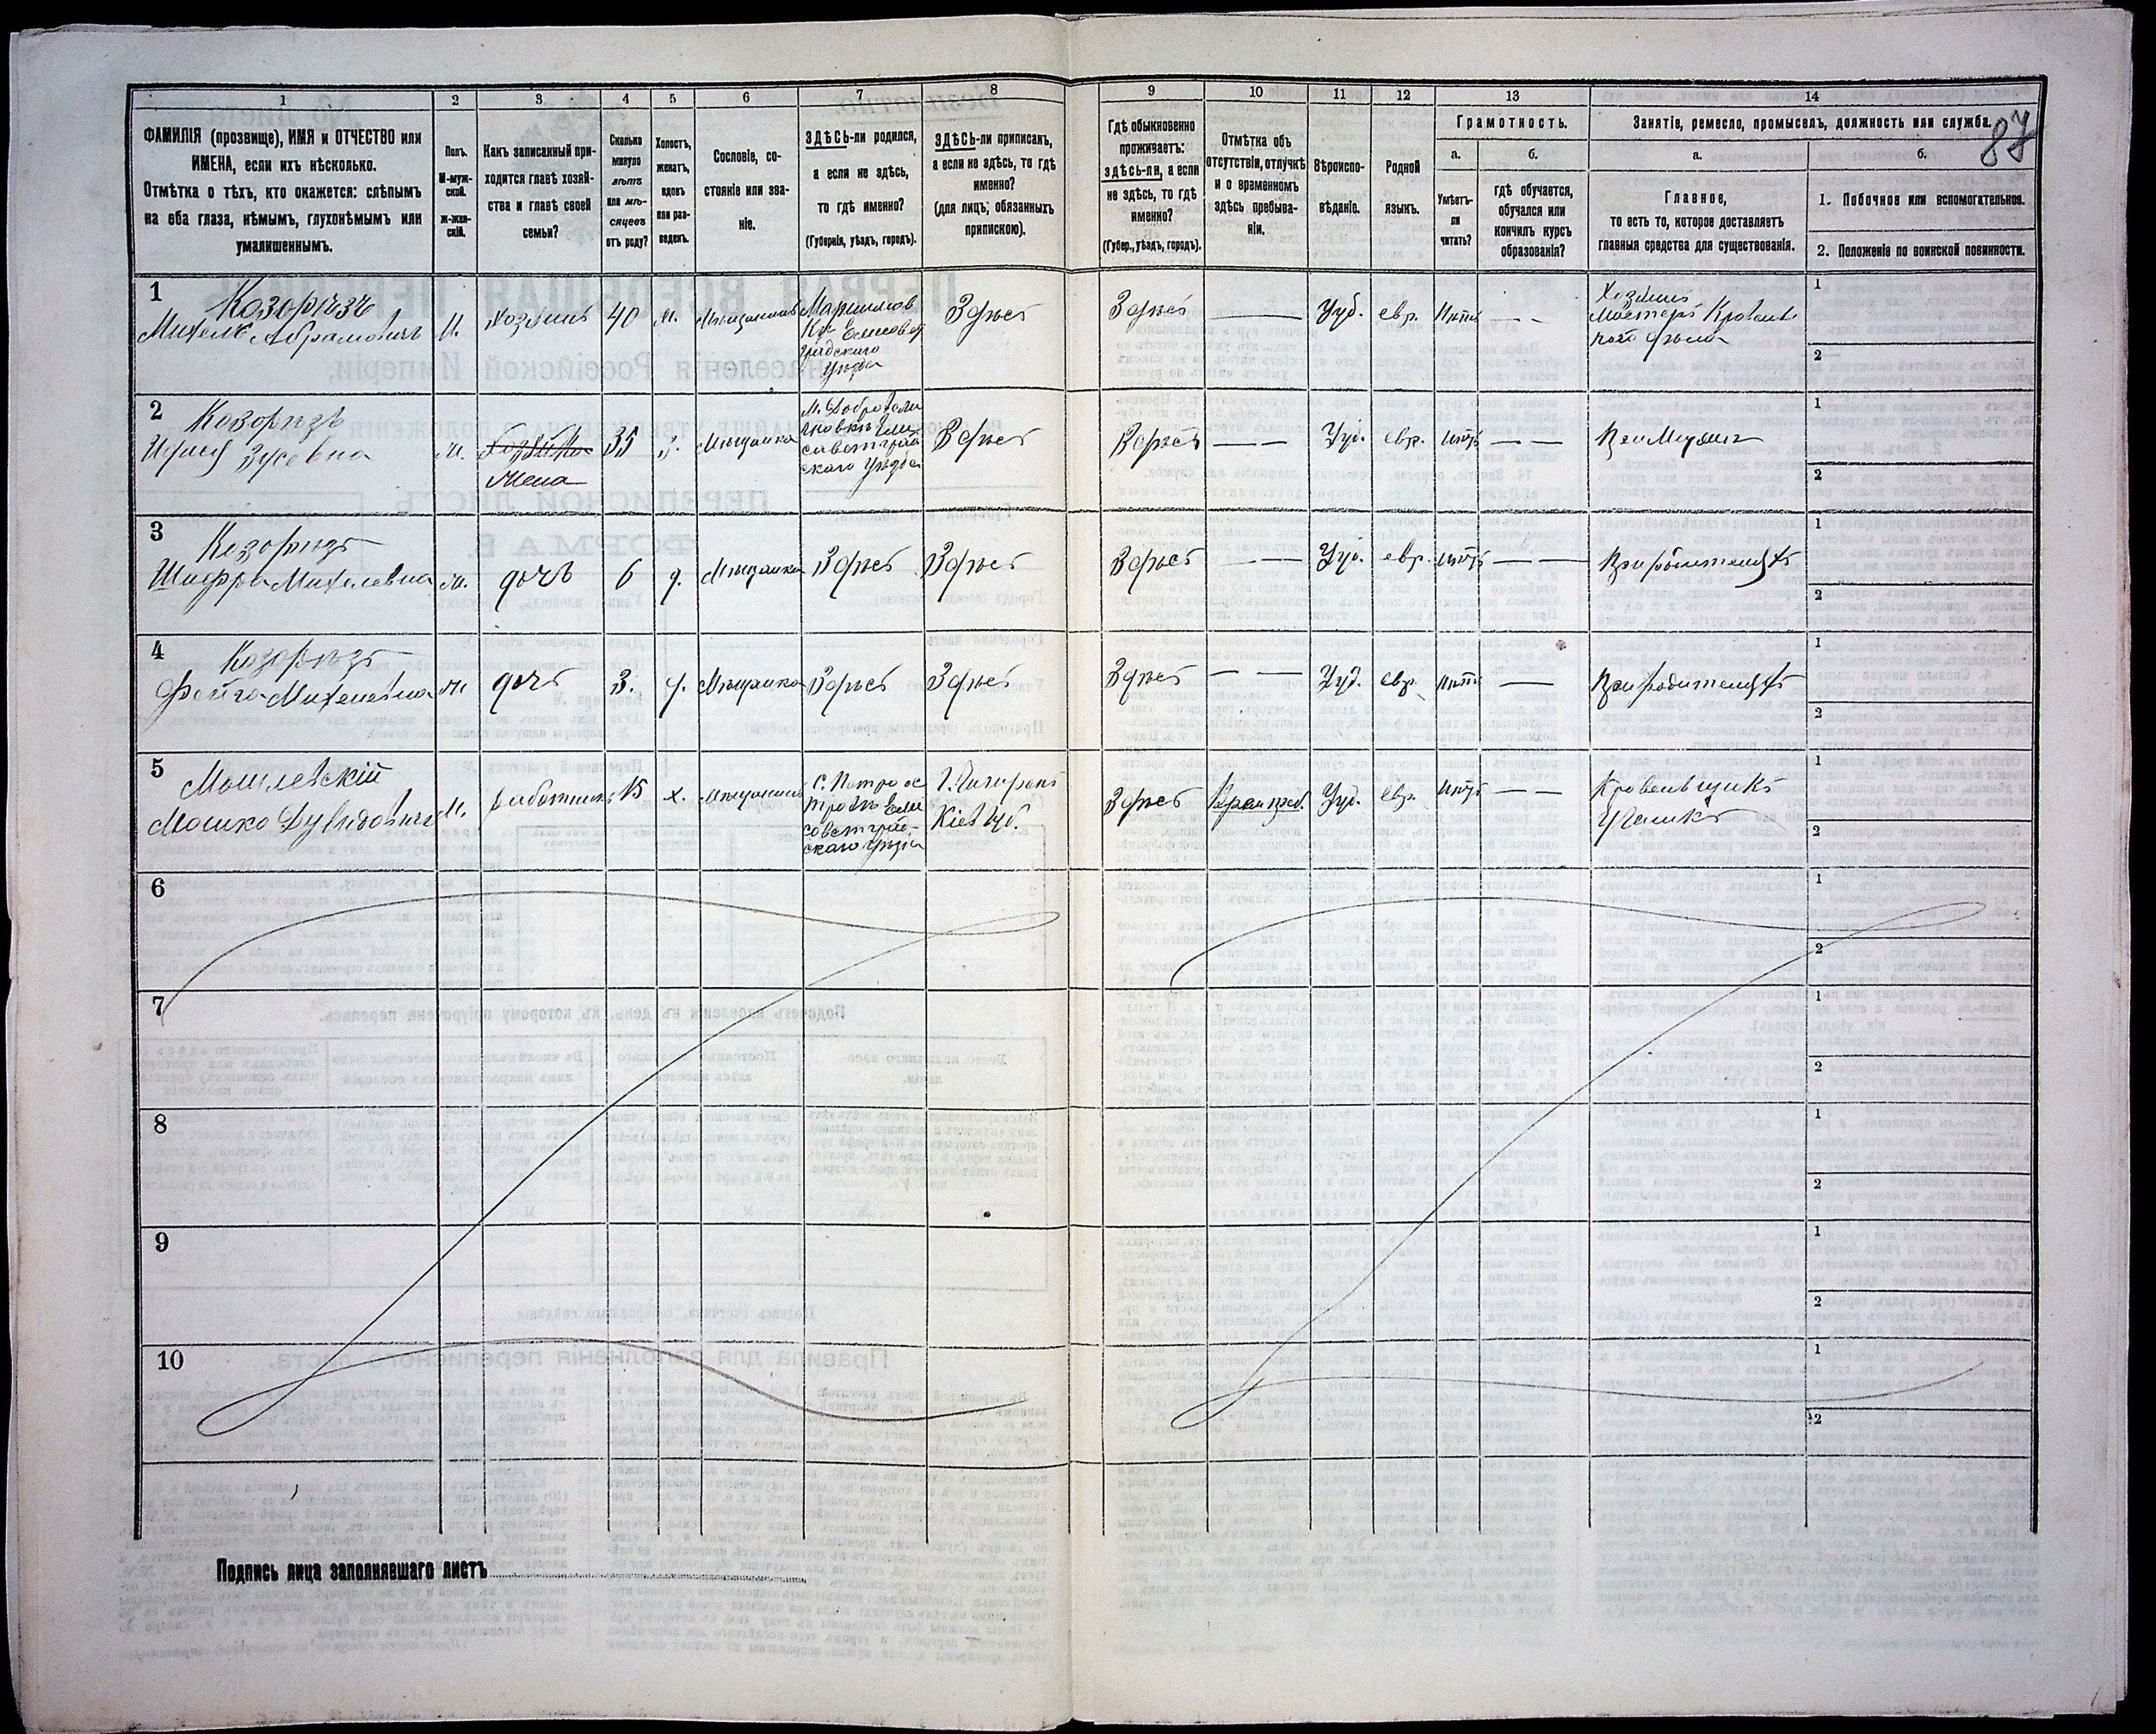 1 2 3 4 5 6 7 8 9 10 11 12 13 14
87
ФАМИЛІЯ (прозвище), ИМЯ и ОТЧЕСТВО или
ИМЕНА, если ихъ нѣсколько.
Отмѣтка о тѣхъ, кто окажется: слѣпымъ
на оба глаза, нѣмымъ, глухонѣмымъ или
умалишеннымъ.
Полъ.
М-муж-
ской.
ж-жен-
скій.
Какъ записанный при-
ходится главѣ хозяй-
ства и главѣ своей
семьи?
Сколько
минуло
лѣтъ
или мѣ-
сяцевъ
отъ роду?
Холостъ,
женатъ,
вдовъ
или раз-
веденъ.
Сословіе, со-
стояніе или зва-
ніе.
ЗДѢСЬ-ли родился,
а если не здѣсь,
то гдѣ именно?
(Губернія, уѣздъ, городъ).
ЗДѢСЬ-ли приписанъ,
а если не здѣсь, то гдѣ
именно?
(для лицъ, обязанныхъ
припискою).
Гдѣ обыкновенно
проживаетъ:
здѣсь-ли, а если
не здѣсь, то гдѣ
именно?
(Губер., уѣздъ, городъ).
Отмѣтка объ
отсутствіи, отлучкѣ
и о временномъ
здѣсь пребыва-
ніи.
Вѣроиспо-
вѣданіе.
Родной
языкъ.
Грамотность.
а.
Умѣетъ-
ли
читать?
б.
гдѣ обучается,
обучался или
кончилъ курсъ
образованія?
Занятіе, ремесло, промыселъ, должность или служба.
а.
Главное,
то есть то, которое доставляетъ
главныя средства для существованія.
б.
1. Побочное или вспомогательное.
2. Положеніе по воинской повинности.
1
Козорѣзъ
Михель Абрамовичъ
М.
Хозяинъ
40
ж.
Мѣщанинъ
Здѣсь
Здѣсь
Іуд.
евр.
Нѣтъ
Хозяинъ
1
2
2
Козорѣзъ
Зусевна
ж.
Хозяйка
Жена
35
з.
Мѣщанка
Здѣсь
Здѣсь
Іуд.
евр.
Нѣтъ
При Мужѣ
1
2
3
Козорѣзъ
Шифра Михелевна
ж.
дочь
6
д.
Мѣщанка
Здѣсь
Здѣсь
Здѣсь
Іуд.
евр.
Нѣтъ
При родителяхъ
1
2
4
Козорѣзъ
Фейга Михелевна
ж.
дочь
3.
д.
Мѣщанка
Здѣсь
Здѣсь
Здѣсь
Іуд.
евр.
Нѣтъ
При родителяхъ
1
2
5
Мошко Дувидовичъ
М.
работникъ
15
х.
Мѣщанинъ
Здѣсь
Іуд.
евр.
Нѣтъ
Кровельщикъ
1
2
6
1
2
7
1
2
8
1
2
9
1
2
10
1
2
Подпись лица заполнявшаго листъ